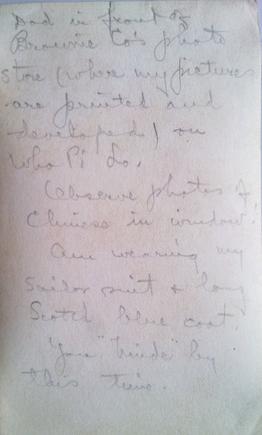 Dad in front of
Brownie Co's photo
store (where my pictures
are printed and
developed) on
Wha Pi Lo.
Observe photos of
Chinese in window.
Am wearing my
sailor suit & long
Scotch blue coat.
by
this time.